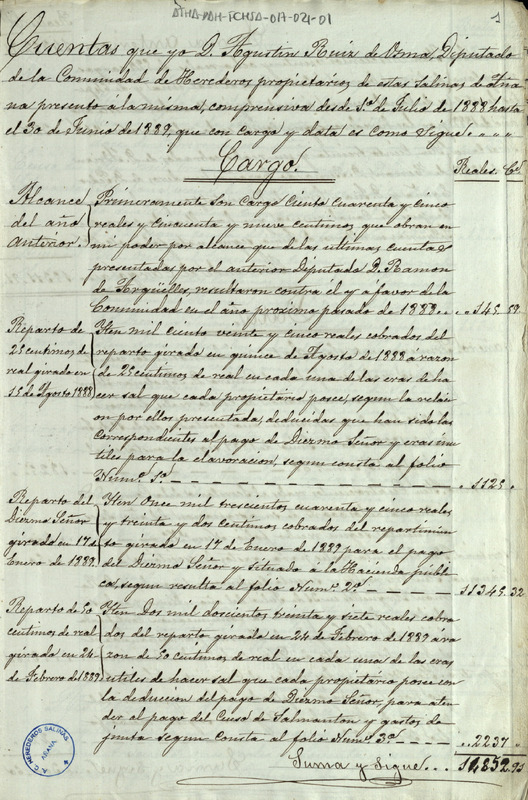 ATHA-DAH-FCHSA-017-021-01
1
Cuentas que yo D. Agustin Ruiz de Osma, Diputado
de la Comunidad de Herederos propietarios de estas Salinas de Aña
na presento á la misma, comprensiva desde 1º de Julio de 1888 hasta
el 30 de Junio de 1889, que con cargo y data es como sigue. " " "
Cargo.
Reales. Cs.
Alcance
del año
anterior.
Primeramente son cargo Ciento Cuarenta y cinco
reales y cincuenta y nueve centimos que obran en
mi poder por alcance que de las ultimas cuentas
presentadas por el anterior Diputado D. Ramon
de Argüelles, resultaron contra él y a favor de la
Comunidad en el año proximo pasado de 1888. " " 145. 59
Reparto de
25 centimos de
real girada en
15 de Agosto 1888
Yten mil ciento veinte y cinco reales cobrados del
reparto girado en quince de Agosto de 1888 á razon
de 25 centimos de real en cada una de las eras de ha
cer sal que cada propietario posee, segun la relaci
on por ellos presentada, deducidas que han sido las
correspondientes al pago de Diezmo Señor y eras inu
tiles para la elavoracion, segun consta al folio
Num.º 1º " 1125 "
Reparto del
Diezmo Señor
girado en 17 de
Enero de 1889.
Yten Once mil trescientos cuarenta y cinco reales
y treinta y dos centimos cobrados del repartimien
to girado en 17 de Enero de 1889 para el pago
del Diezmo Señor y situado á la Hacienda públi
ca, segun resulta al folio Num.º 2º 11345. 32
Reparto de 50
centimos de real
girada en 24
de Febrero de 1889
Yten Dos mil doscientos treinta y siete reales cobra
dos del reparto girada en 24 de Febrero de 1889 á ra
zon de 50 centimos de real en cada una de las eras
utiles de hacer sal que cada propietario posee con
la deducion del pago de Diezmo Señor, para aten
der al pago del Censo de Salmanton y gastos de
junta segun consta al folio Num.º 3º " 2237 "
Suma y sigue... 14852. 91
A.C. HEREDEROS SALINAS
AÑANA